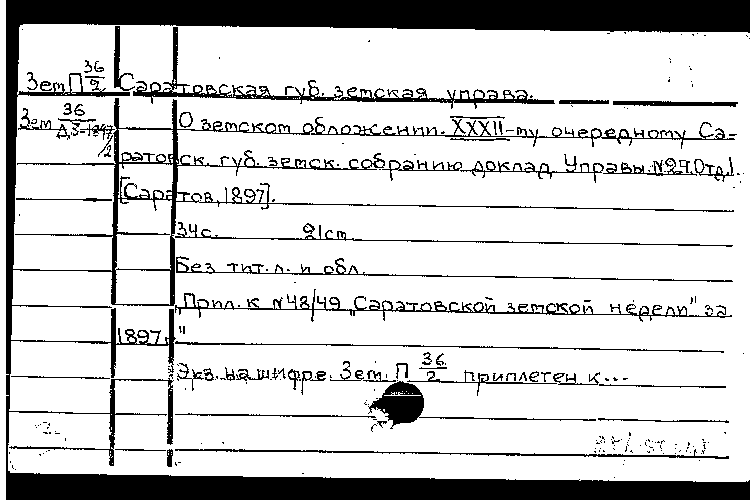 Зем П 36/2 Саратовская губ. земская управа.
Зем 36/Д,3-1897/2 О земском обложении. XXXII-му очередному Са=
ратовск. губ. земск. собранию доклад Управы. №27. Отд.I.
[Саратов, 1897].
34с. 21см
Без тит.л. и обл.
"Прил. к №48/49 "Саратовской земской недели" за
1897."
Экз. на шифре. Зем. П 36/2 приплетен к...